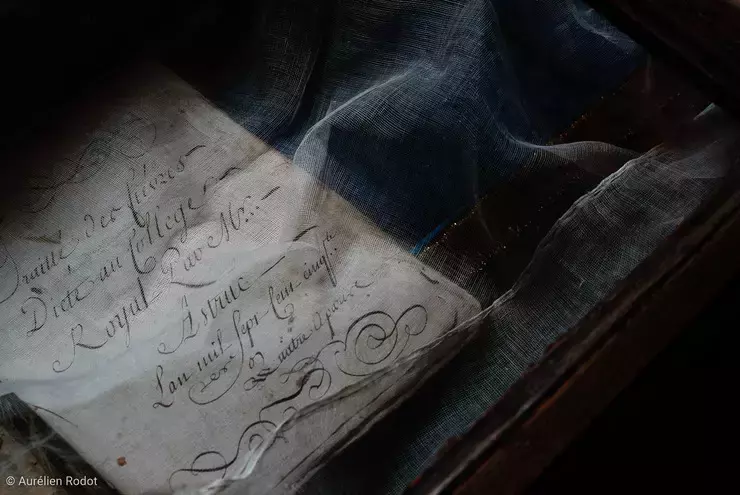 Traitté des fièvres
Dicté au College
Royal Par Mr.
Astruc
Lan mil Sept Cens cinq.te
© Aurélien Rodot